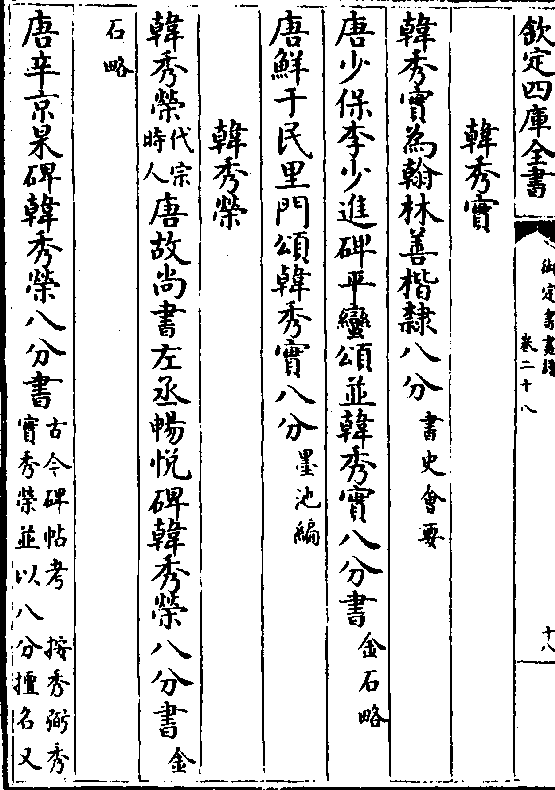 欽定四庫全書
御定書畫譜
卷二十八
十八
韓秀實
韓秀實為翰林善楷隸八分書史會要
唐少保李少進碑平蠻頌並韓秀實八分書金石略
唐鮮于民里門頌韓秀實八分墨池編
韓秀榮
韓秀榮代宗時人唐故尚書左丞暢悅碑韓秀榮八分書金
石略
唐辛京杲碑韓秀榮八分書古今碑帖考 按秀弼秀實秀榮並以八分擅名又